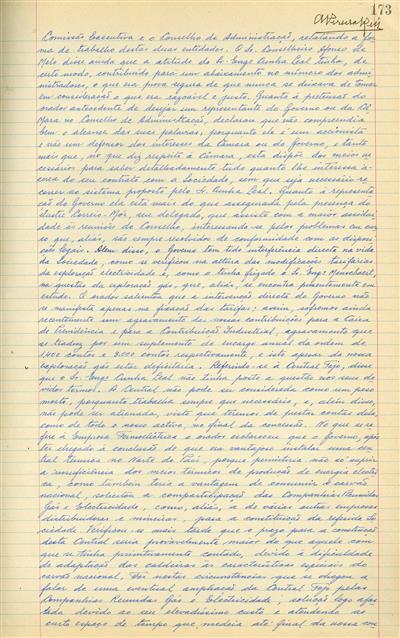 173
Comissão Executiva e o Conselho de Administração, relatando a for-
ma de trabalho destas duas entidades. O Sr. Conselheiro Afonso de
Melo disse ainda que a atitude do Sr. Engº Cunha Leal tinha, de
certo modo, contribuido para um abaixamento no número dos admi-
nistradores, o que era prova segura de que nunca se deixava de tomar
em consideração o que era razoável e justo. Quanto à pretensão do
orador antecedente de desejar um representante do Governo ou da Câ-
mara no Conselho de Administração, declarou que não compreendia
bem o alcance das suas palavras, porquanto ele é um accionista
e não um defensor dos interesses da Câmara ou do Governo, e tanto
mais que, no que diz respeito à Câmara, esta dispõe dos meios ne-
cessários para saber detalhadamente tudo quanto lhe interessa à-
cerca do seu contrato com a Sociedade, sem que seja necessário re-
correr ao sistema proposto pelo Sr. Cunha Leal. Quanto à representa-
ção do Governo ela está mais do que assegurada pela presença do
ilustre Correio-Mór, seu delegado, que assiste com a maior assidui-
dade às reuniões do Conselho, interessando-se pelos problemas em cur-
so que, aliás, são sempre resolvidos de conformidade com as disposi-
ções legais. Além disso, o Governo tem tido interferência directa na vida
da Sociedade, como se verificou na altura das modificações tarifárias
da exploração electricidade e, como o tinha frizado o Sr. Engº Menschaert,
na questão da exploração gás, que, aliás, se encontra presentemente em
estudo. O orador salientou que a intervenção directa do Governo não
se manifesta apenas na fixação das tarifas; assim, sofremos ainda
recentemente um agravamento de nossas contribuições para a Caixa
de Previdência e para a Contribuição Industrial, agravamento que
se traduz por um suplemento de encargo anual da ordem de
1.400 contos e 3.000 contos respectivamente, e isto apesar da nossa
exploração gás estar deficitária. Referindo-se à Central Tejo, disse
que o Sr. Engº Cunha Leal não tinha posto a questão nos seus de-
vidos termos. A Central não pode ser considerada como um peso
morto, porquanto trabalha sempre que necessário, e, além disso,
não pode ser alienada, visto que teremos de prestar contas dela,
como de todo o nosso activo, no final da concessão. No que se re-
fere à Empresa Termoeléctrica o orador esclareceu que o Governo, após
ter chegado à conclusão de que era vantajoso instalar uma cen-
tral térmica no Norte do País, porque permitiria não só suprir
a insuficiência dos meios térmicos de produção de energia electri-
ca, como também teria a vantagem de consumir o carvão
nacional, solicitou a comparticipação das Companhias Reunidas
Gás e Electricidade, como, aliás, a de várias outras empresas
distribuidoras e mineiras, para a constituição da referida So-
ciedade. Verificou-se mais tarde que o prazo para a construção
desta Central seria provàvelmente maior do que aquele com
que se tinha primitivamente contado, devido à dificuldade
de adaptação das caldeiras às características especiais do
carvão nacional. Foi nestas circunstâncias que se chegou a
falar de uma eventual ampliação da Central Tejo pelas
Companhias Reunidas Gás e Electricidade, solução logo afas-
tada devido ao seu elevadíssimo custo e atendendo ao
curto espaço de tempo que medeia até final da nossa con-